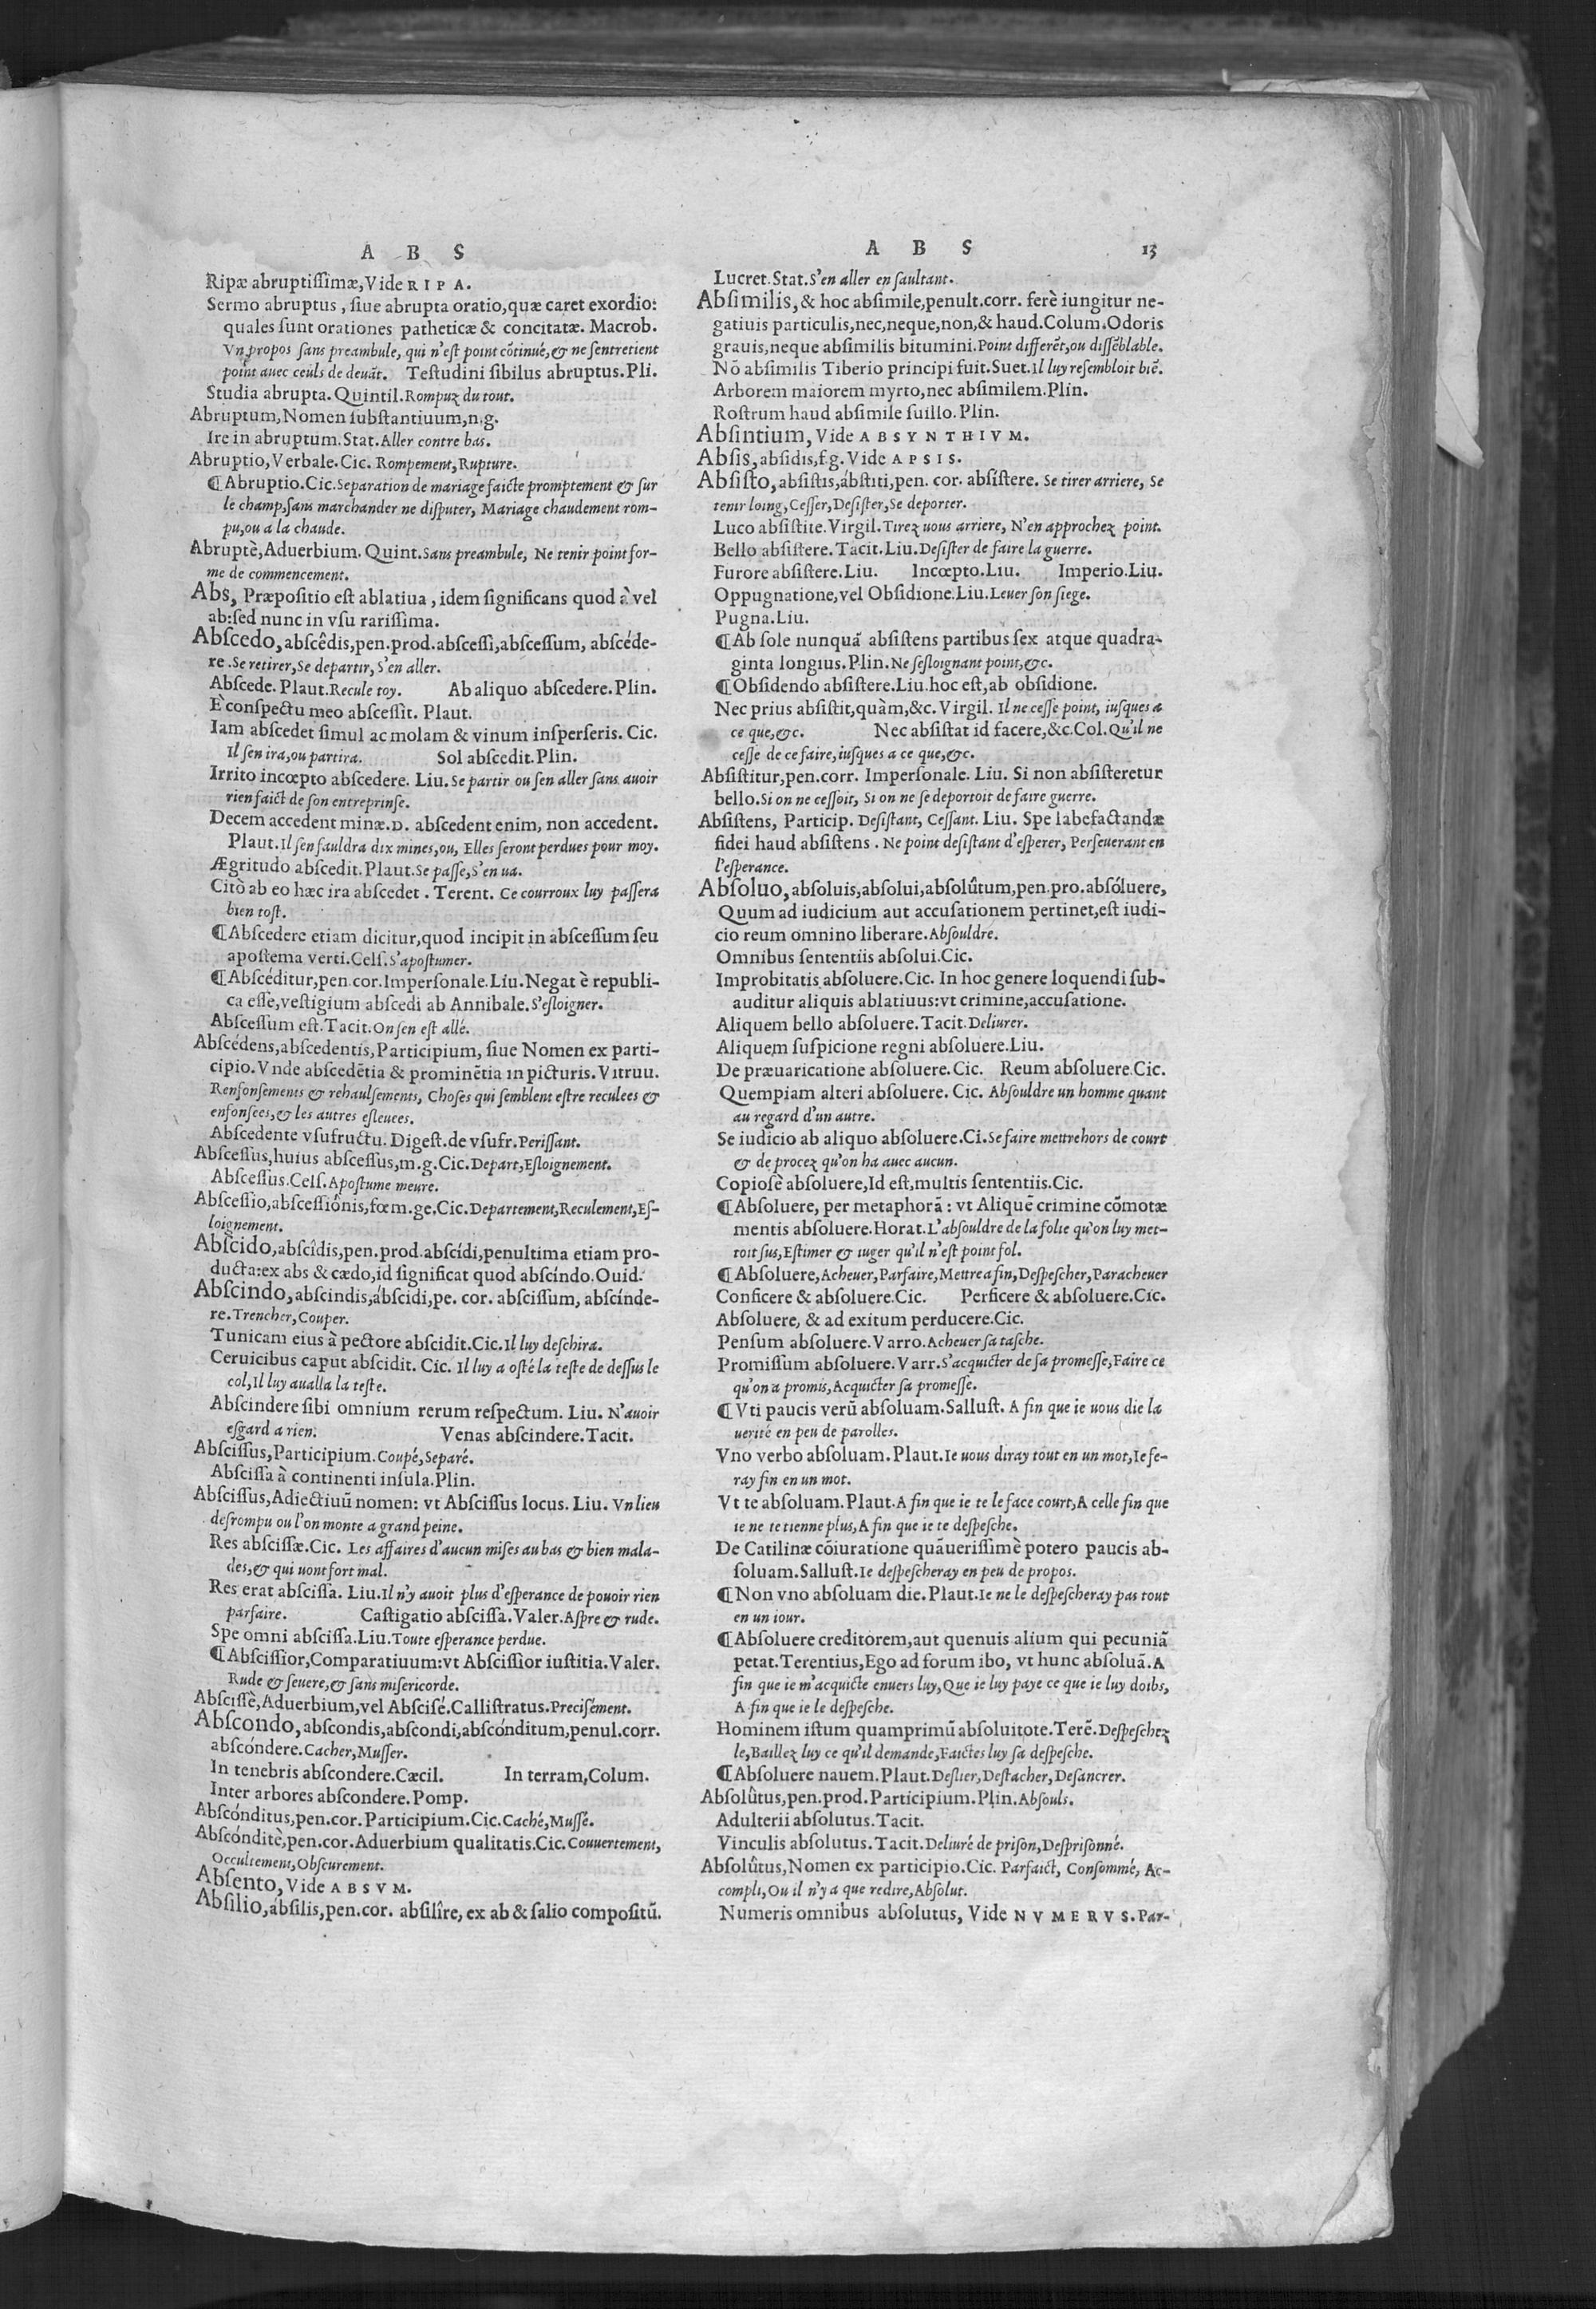 A B S
Ripæ abruptiſſimæ, Vide RIPA.
Sermo abruptus, ſiue abrupta oratio, quæ caret exordio:
quales ſunt orationes patheticæ & concitatæ. Macrob.
Vn propos ſans preambule, qui n'eſt point cõtinué, & ne ſentretient
point auec ceuls de deuãt. Teſtudini ſibilus abruptus. Pli.
Studia abrupta. Quintil. Rompuz du tout.
Abruptum, Nomen ſubſtantiuum, n.g.
Ire in abruptum. Stat. Aller contre bas.
Abruptio, Verbale. Cic. Rompement, Rupture.
¶ Abruptio. Cic. Separation de mariage faicte promptement & ſur
le champ, ſans marchander ne diſputer, Mariage chaudement rom-
pu, ou a la chaude.
Abruptè, Aduerbium. Quint. Sans preambule, Ne tenir point for-
me de commencement.
Abs, Præpoſitio eſt ablatiua, idem ſignificans quod à vel
ab: ſed nunc in vſu rariſſima.
Abſcedo, abſcêdis, pen. prod. abſceſſi, abſceſſum, abſcéde-
re. Se retirer, Se departir, S'en aller.
Abſcede. Plaut. Recule toy. Ab aliquo abſcedere. Plin.
E conſpectu meo abſceſſit. Plaut.
Iam abſcedet ſimul ac molam & vinum inſperſeris. Cic.
Il ſen ira, ou partira. Sol abſcedit. Plin.
Irrito incœpto abſcedere. Liu. Se partir ou ſen aller ſans auoir
rien faict de ſon entreprinſe.
Decem accedent minæ. D. abſcedent enim, non accedent.
Plaut. Il ſen fauldra dix mines, ou, Elles ſeront perdues pour moy.
Ægritudo abſcedit. Plaut. Se paſſe, S'en ua.
Citò ab eo hæc ira abſcedet. Terent. Ce courroux luy paſſera
bien toſt.
¶ Abſcedere etiam dicitur, quod incipit in abſceſſum ſeu
apoſtema verti. Celſ. S'apoſtumer.
¶ Abſcéditur, pen. cor. Imperſonale. Liu. Negat è republi-
ca eſſe, veſtigium abſcedi ab Annibale. S'eſloigner.
Abſceſſum eſt. Tacit. On ſen eſt allé.
Abſcédens, abſcedentis, Participium, ſiue Nomen ex parti-
cipio. Vnde abſcedẽtia & prominẽtia in picturis. Vitruu.
Renfonſements & rehaulſements, Choſes qui ſemblent eſtre reculees &
enfonſees, & les autres eſleuees.
Abſcedente vſufructu. Digeſt. de vſufr. Periſſant.
Abſceſſus, huius abſceſſus, m.g. Cic. Depart, Eſloignement.
Abſceſſus. Celſ. Apoſtume meure.
Abſceſſio, abſceſſiônis, fœm. ge. Cic. Departement, Reculement, Eſ-
loignement.
Abſcido, abſcîdis, pen. prod. abſcídi, penultima etiam pro-
ducta: ex abs & cædo, id ſignificat quod abſcíndo. Ouid.
Abſcindo, abſcindis, ábſcidi, pe. cor. abſciſſum, abſcínde-
re. Trencher, Couper.
Tunicam eius à pectore abſcidit. Cic. Il luy deſchira.
Ceruicibus caput abſcidit. Cic. Il luy a oſté la teſte de deſſus le
col, Il luy aualla la teſte.
Abſcindere ſibi omnium rerum reſpectum. Liu. N'auoir
eſgard a rien. Venas abſcindere. Tacit.
Abſciſſus, Participium. Coupé, Separé.
Abſciſſa à continenti inſula. Plin.
Abſciſſus, Adiectiuũ nomen: vt Abſciſſus locus. Liu. Vn lieu
deſrompu ou l'on monte a grand peine.
Res abſciſſæ. Cic. Les affaires d'aucun miſes au bas & bien mala-
des, & qui uont fort mal.
Res erat abſciſſa. Liu. Il n'y auoit plus d'eſperance de pouoir rien
parfaire. Caſtigatio abſciſſa. Valer. Aſpre & rude.
Spe omni abſciſſa. Liu. Toute eſperance perdue.
¶ Abſciſſior, Comparatiuum: vt Abſciſſior iuſtitia. Valer.
Rude & ſeuere, & ſans miſericorde.
Abſciſſè, Aduerbium, vel Abſciſé. Calliſtratus. Preciſément.
Abſcondo, abſcondis, abſcondi, abſcónditum, penul. corr.
abſcóndere. Cacher, Muſſer.
In tenebris abſcondere. Cæcil. In terram, Colum.
Inter arbores abſcondere. Pomp.
Abſcónditus, pen. cor. Participium. Cic. Caché, Muſſé.
Abſcónditè, pen. cor. Aduerbium qualitatis. Cic. Couuertement,
Occultement, Obſcurement.
Abſento, Vide ABSVM.
Abſilio, ábſilis, pen. cor. abſilîre, ex ab & ſalio compoſitũ.
A B S 13
Lucret. Stat. S'en aller en ſaultant.
Abſimilis, & hoc abſimile, penult. corr. ferè iungitur ne-
gatiuis particulis, nec, neque, non, & haud. Colum. Odoris
grauis, neque abſimilis bitumini. Point differẽt, ou diſſẽblable.
Nõ abſimilis Tiberio principi fuit. Suet. Il luy reſembloit biẽ.
Arborem maiorem myrto, nec abſimilem. Plin.
Roſtrum haud abſimile ſuillo. Plin.
Abſintium, Vide ABSYNTHIVM.
Abſis, abſidis, f.g. Vide APSIS.
Abſiſto, abſiſtis, ábſtiti, pen. cor. abſíſtere. Se tirer arriere, Se
tenir loing, Ceſſer, Deſiſter, Se deporter.
Luco abſiſtite. Virgil. Tirez uous arriere, N'en approchez point.
Bello abſiſtere. Tacit. Liu. Deſiſter de faire la guerre.
Furore abſiſtere. Liu. Incœpto. Liu. Imperio. Liu.
Oppugnatione, vel Obſidione. Liu. Leuer ſon ſiege.
Pugna. Liu.
¶ Ab ſole nunquã abſiſtens partibus ſex atque quadra-
ginta longius. Plin. Ne ſeſloignant point, &c.
¶ Obſidendo abſiſtere. Liu. hoc eſt, ab obſidione.
Nec prius abſiſtit, quàm, &c. Virgil. Il ne ceſſe point, iuſques a
ce que, &c. Nec abſiſtat id facere, &c. Col. Qu'il ne
ceſſe de ce faire, iuſques a ce que, &c.
Abſiſtitur, pen. corr. Imperſonale. Liu. Si non abſiſteretur
bello. Si on ne ceſſoit, Si on ne ſe deportoit de faire guerre.
Abſiſtens, Particip. Deſiſtant, Ceſſant. Liu. Spe labefactandæ
fidei haud abſiſtens. Ne point deſiſtant d'eſperer, Perſeuerant en
l'eſperance.
Abſoluo, abſoluis, abſolui, abſolûtum, pen. pro. absóluere,
Quum ad iudicium aut accuſationem pertinet, eſt iudi-
cio reum omnino liberare. Abſouldre.
Omnibus ſententiis abſolui. Cic.
Improbitatis abſoluere. Cic. In hoc genere loquendi ſub-
auditur aliquis ablatiuus: vt crimine, accuſatione.
Aliquem bello abſoluere. Tacit. Deliurer.
Aliquem ſuſpicione regni abſoluere. Liu.
De præuaricatione abſoluere. Cic. Reum abſoluere. Cic.
Quempiam alteri abſoluere. Cic. Abſouldre un homme quant
au regard d'un autre.
Se iudicio ab aliquo abſoluere. Ci. Se faire mettre hors de court
& de procez qu'on ha auec aucun.
Copioſè abſoluere, Id eſt, multis ſententiis. Cic.
¶ Abſoluere, per metaphorã: vt Aliquẽ crimine cõmotæ
mentis abſoluere. Horat. L'abſouldre de la folie qu'on luy met-
toit ſus, Eſtimer & iuger qu'il n'eſt point fol.
¶ Abſoluere, Acheuer, Parfaire, Mettre a fin, Deſpeſcher, Paracheuer
Conficere & abſoluere. Cic. Perficere & abſoluere. Cic.
Abſoluere, & ad exitum perducere. Cic.
Penſum abſoluere. Varro. Acheuer ſa taſche.
Promiſſum abſoluere. Varr. S'acquicter de ſa promeſſe, Faire ce
qu'on a promis, Acquicter ſa promeſſe.
¶ Vti paucis verũ abſoluam. Salluſt. A fin que ie uous die la
uerité en peu de parolles.
Vno verbo abſoluam. Plaut. Ie uous diray tout en un mot, Ie fe-
ray fin en un mot.
Vt te abſoluam. Plaut. A fin que ie te le face court, A celle fin que
ie ne te tienne plus, A fin que ie te deſpeſche.
De Catilinæ cõiuratione quã ueriſſimè potero paucis ab-
ſoluam. Salluſt. Ie deſpeſcheray en peu de propos.
¶ Non vno abſoluam die. Plaut. Ie ne le deſpeſcheray pas tout
en un iour.
¶ Abſoluere creditorem, aut quenuis alium qui pecuniã
petat. Terentius, Ego ad forum ibo, vt hunc abſoluã. A
fin que ie m'acquicte enuers luy, Que ie luy paye ce que ie luy doibs,
A fin que ie le deſpeſche.
Hominem iſtum quamprimũ abſoluitote. Terẽ. Deſpeſchez
le, Baillez luy ce qu'il demande, Faictes luy ſa deſpeſche.
¶ Abſoluere nauem. Plaut. Deſlier, Deſtacher, Deſancrer.
Abſolûtus, pen. prod. Participium. Plin. Abſouls.
Adulterii abſolutus. Tacit.
Vinculis abſolutus. Tacit. Deliuré de priſon, Deſpriſonné.
Abſolûtus, Nomen ex participio. Cic. Parfaict, Conſommé, Ac-
compli, Ou il n'y a que redire, Abſolut.
Numeris omnibus abſolutus, Vide NVMERVS. Par-